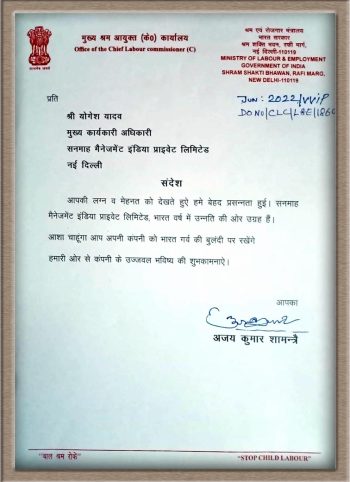 मुख्य श्रम आयुक्त (के०) कार्यालय
Office of the Chief Labour commissioner (C)
श्रम एवं रोजगार मंत्रालय
भारत सरकार
श्रम शक्ति भवन, रफी मार्ग,
नई दिल्ली-110119
MINISTRY OF LABOUR & EMPLOYMENT
GOVERNMENT OF INDIA
SHRAM SHAKTI BHAWAN, RAFI MARG,
NEW DELHI-110119
प्रति
Jun: 2022/VVIP
DO NO/CLC/L&E/186
श्री योगेश यादव
मुख्य कार्यकारी अधिकारी
सनमाह मैनेजमेंट इंडिया प्राइवेट लिमिटेड
नई दिल्ली
संदेश
आपकी लग्न व मेहनत को देखते हुऐ हमे बेहद प्रसन्नता हुई। सनमाह
मैनेजमेंट इंडिया प्राइवेट लिमिटेड, भारत वर्ष में उन्नति की ओर उग्रह हैं।
आशा चाहूंगा आप अपनी कंपनी को भारत गर्व की बुलंदी पर रखेंगे
हमारी ओर से कंपनी के उज्जवल भविष्य की शुभकामनाऐ।
आपका
अजय कुमार शामन्त्रै
"बाल श्रम रोकें"
"STOP CHILD LABOUR"